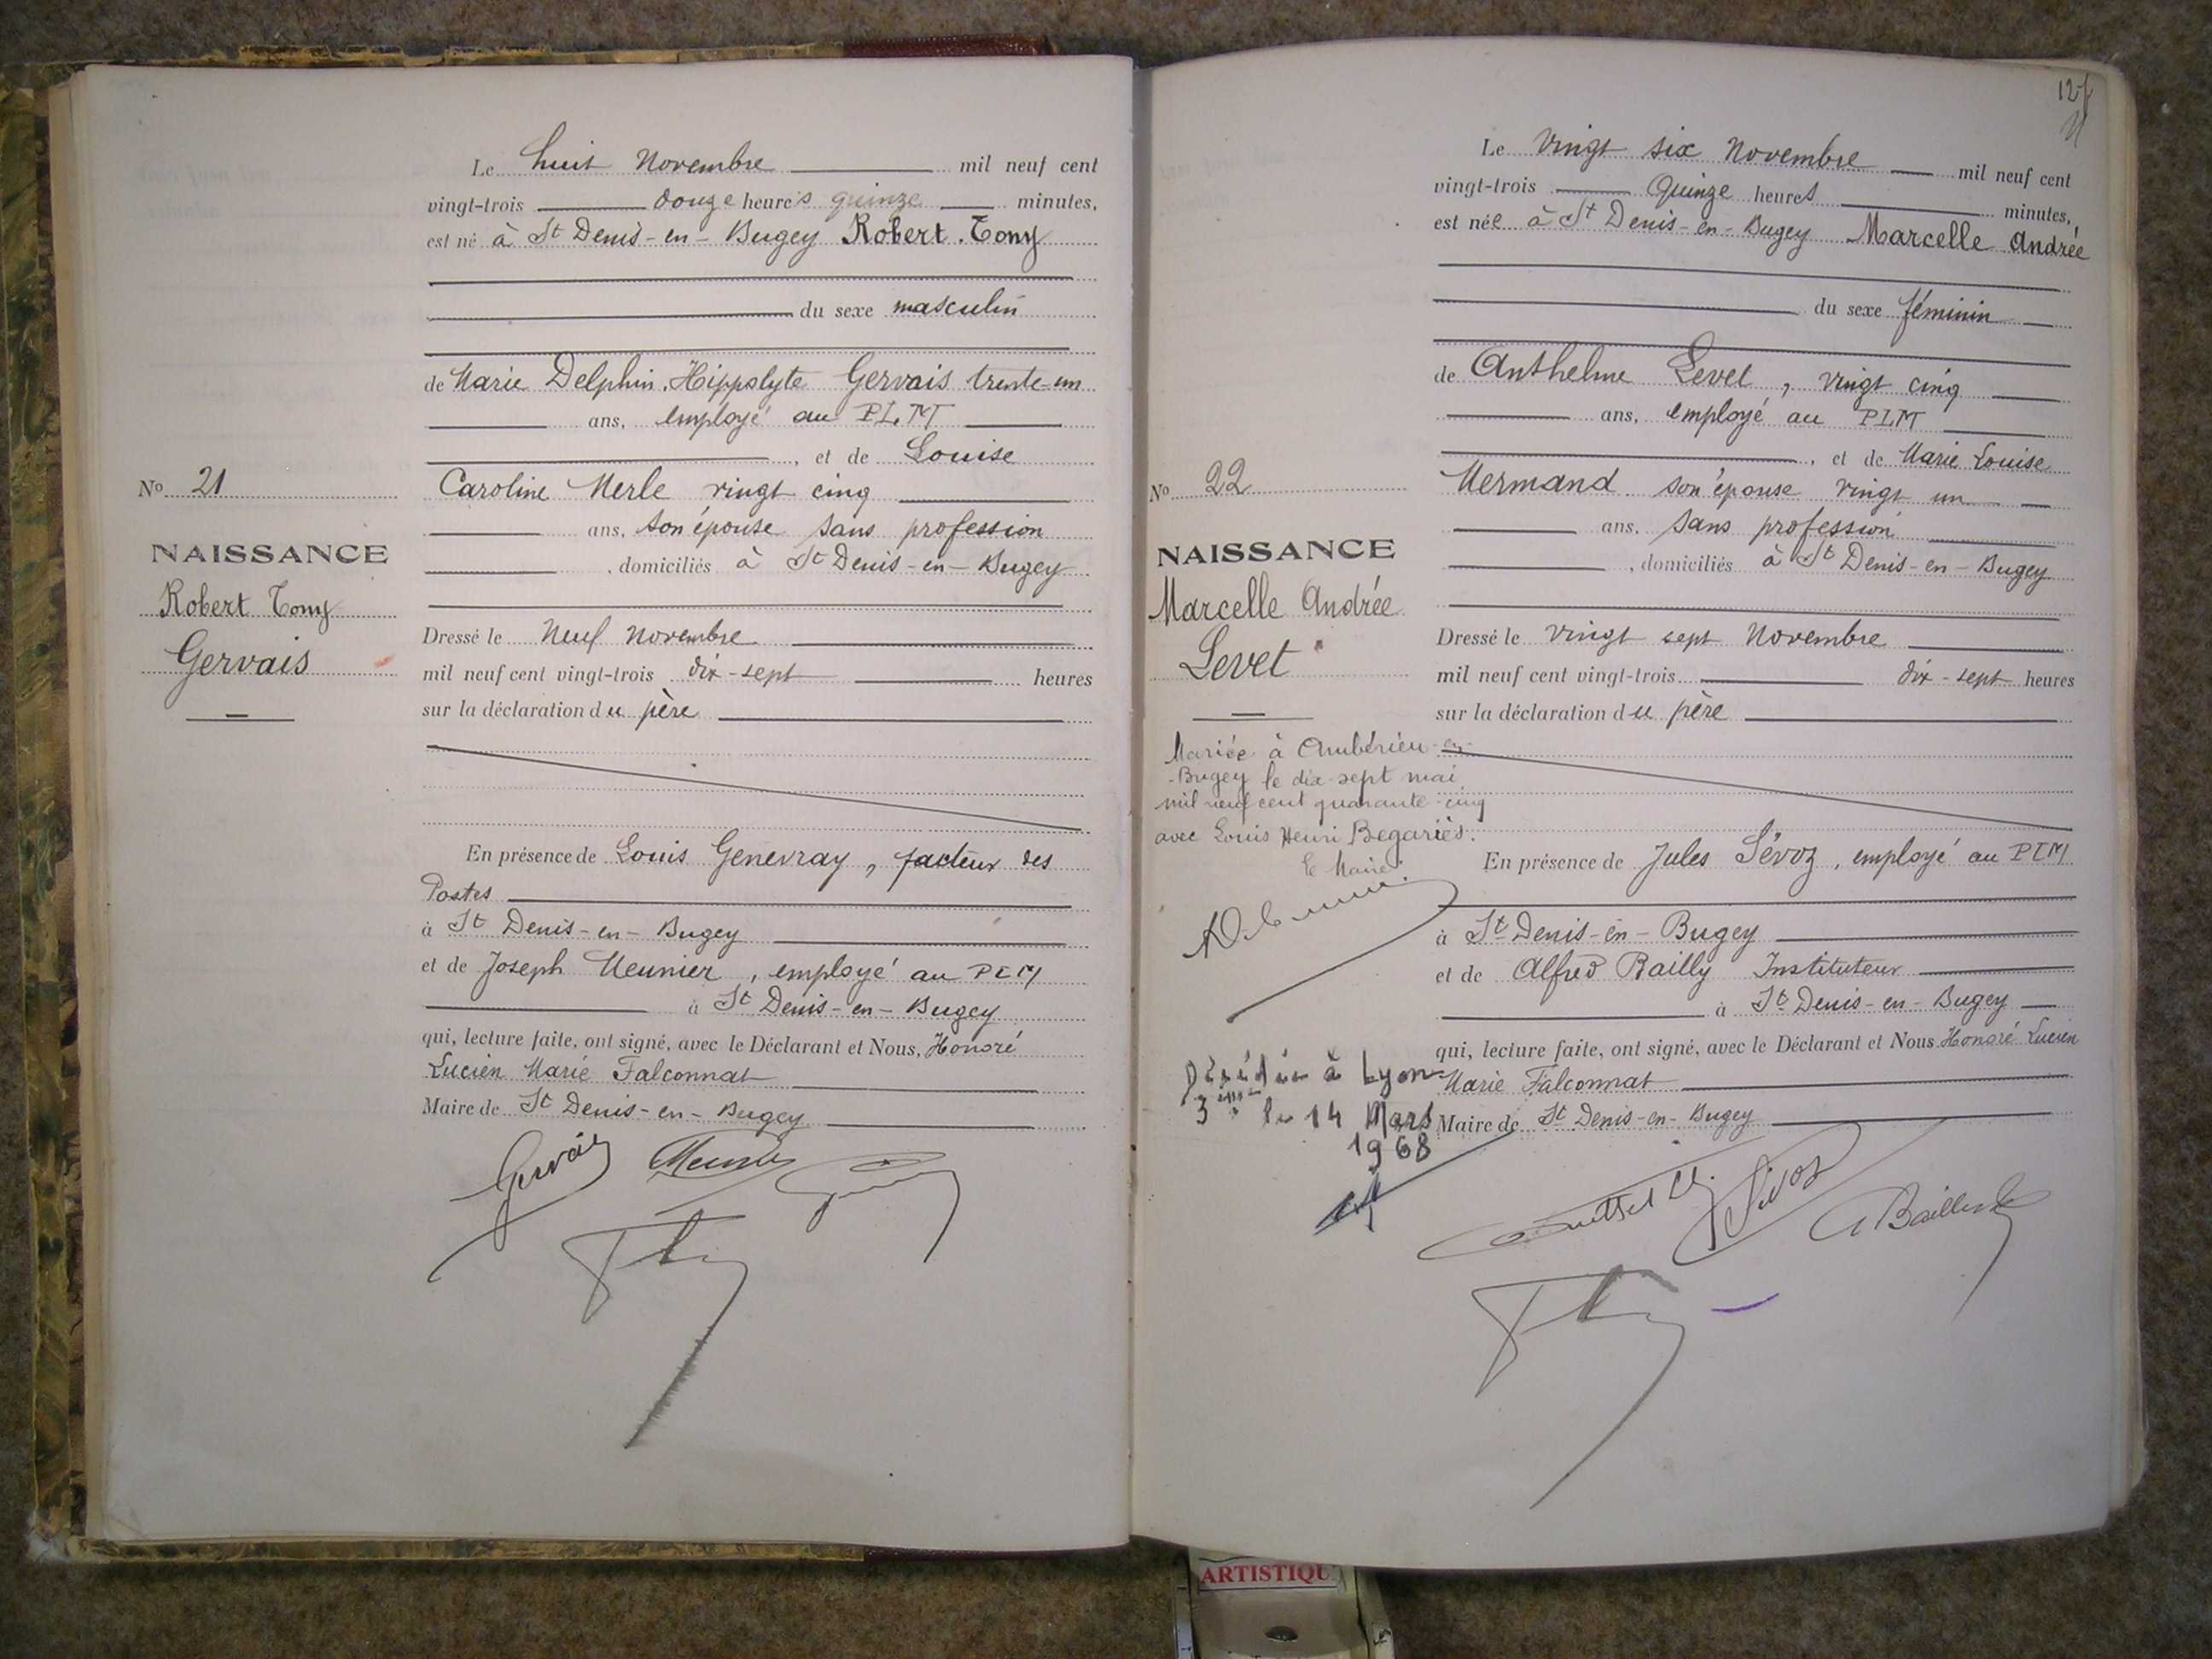 Le huit Novembre mil neuf cent
vingt-trois douze heures quinze minutes,
est né à St Denis-en-Bugey Robert Tony
du sexe masculin
de Marie Delphin Hippolyte Gervais trente-un
ans, employé au PLM
, et de Louise
Caroline Merle vingt cinq
ans, son épouse sans profession
, domiciliés à St Denis-en-Bugey
Dressé le Neuf Novembre
mil neuf cent vingt-trois dix-sept heures
sur la déclaration du père
En présence de Louis Genevray, facteur des
Postes
à St Denis-en-Bugey
et de Joseph Meunier, employé au PLM
à St Denis-en-Bugey
qui, lecture faite, ont signé, avec le Déclarant et Nous, Honoré
Lucien Marie Falconnat
Maire de St Denis-en-Bugey
Gervais Meunier
No 21
NAISSANCE
Robert Tony
Gervais
12
Le Vingt six Novembre mil neuf cent
vingt-trois Quinze heures minutes,
est née à St Denis-en-Bugey Marcelle Andrée
du sexe féminin
de Anthelme Levet, vingt cinq
ans, employé au PLM
, et de Marie Louise
Mermand son épouse vingt un
ans, sans profession
, domiciliés à St Denis-en-Bugey
Dressé le vingt sept Novembre
mil neuf cent vingt-trois dix-sept heures
sur la déclaration du père
En présence de Jules Sévoz, employé au PLM
à St Denis-en-Bugey
et de Alfred Bailly Instituteur
à St Denis-en-Bugey
qui, lecture faite, ont signé, avec le Déclarant et Nous Honoré Lucien
Marie Falconnat
Maire de St Denis-en-Bugey
Sévoz
No 22
NAISSANCE
Marcelle Andrée
Levet
Mariée à Ambérieu-en-
-Bugey le dix-sept mai
mil neuf cent quarante-cinq
avec Louis Henri Begariès.
le Maire
Décédée à Lyon
3ème le 14 Mars
1968
ARTISTIQU